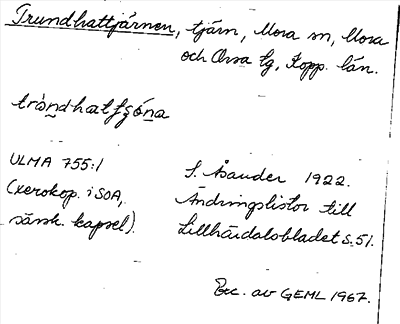 Trundhattjärnen, tjärn, Mora sn, Mora
och Orsa tg, Kopp. län.
tròndhatʃǥó̱na
ULMA 755:1
(xerokop. i SOA,
särsk. kapsel).
S. Bauder 1922.
Ändringslistor till
Lillhärdalsbladet s. 51.
Exc. av GEML 1967.